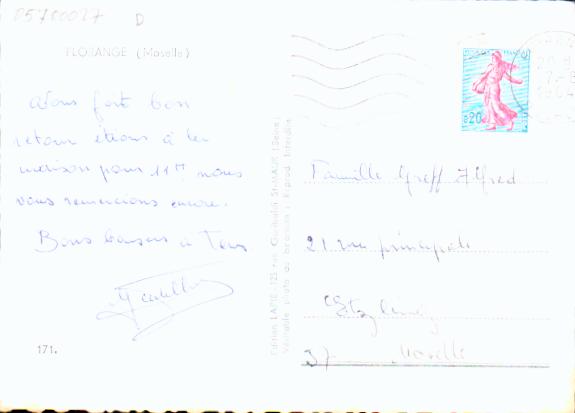 05700027 D
FLORANGE (Moselle)
avons fait bon
retour étions à la
maison pour 11H nous
vous remercions encore.
Bons baisers à Tous
171.
Edition LAPIE - 125 rue Garibaldi St-MAUR (Seine)
Véritable photo au bromure : Reprod. Interdite
0,20
Famille Greff Alfred
21 rue principale
37 Moselle